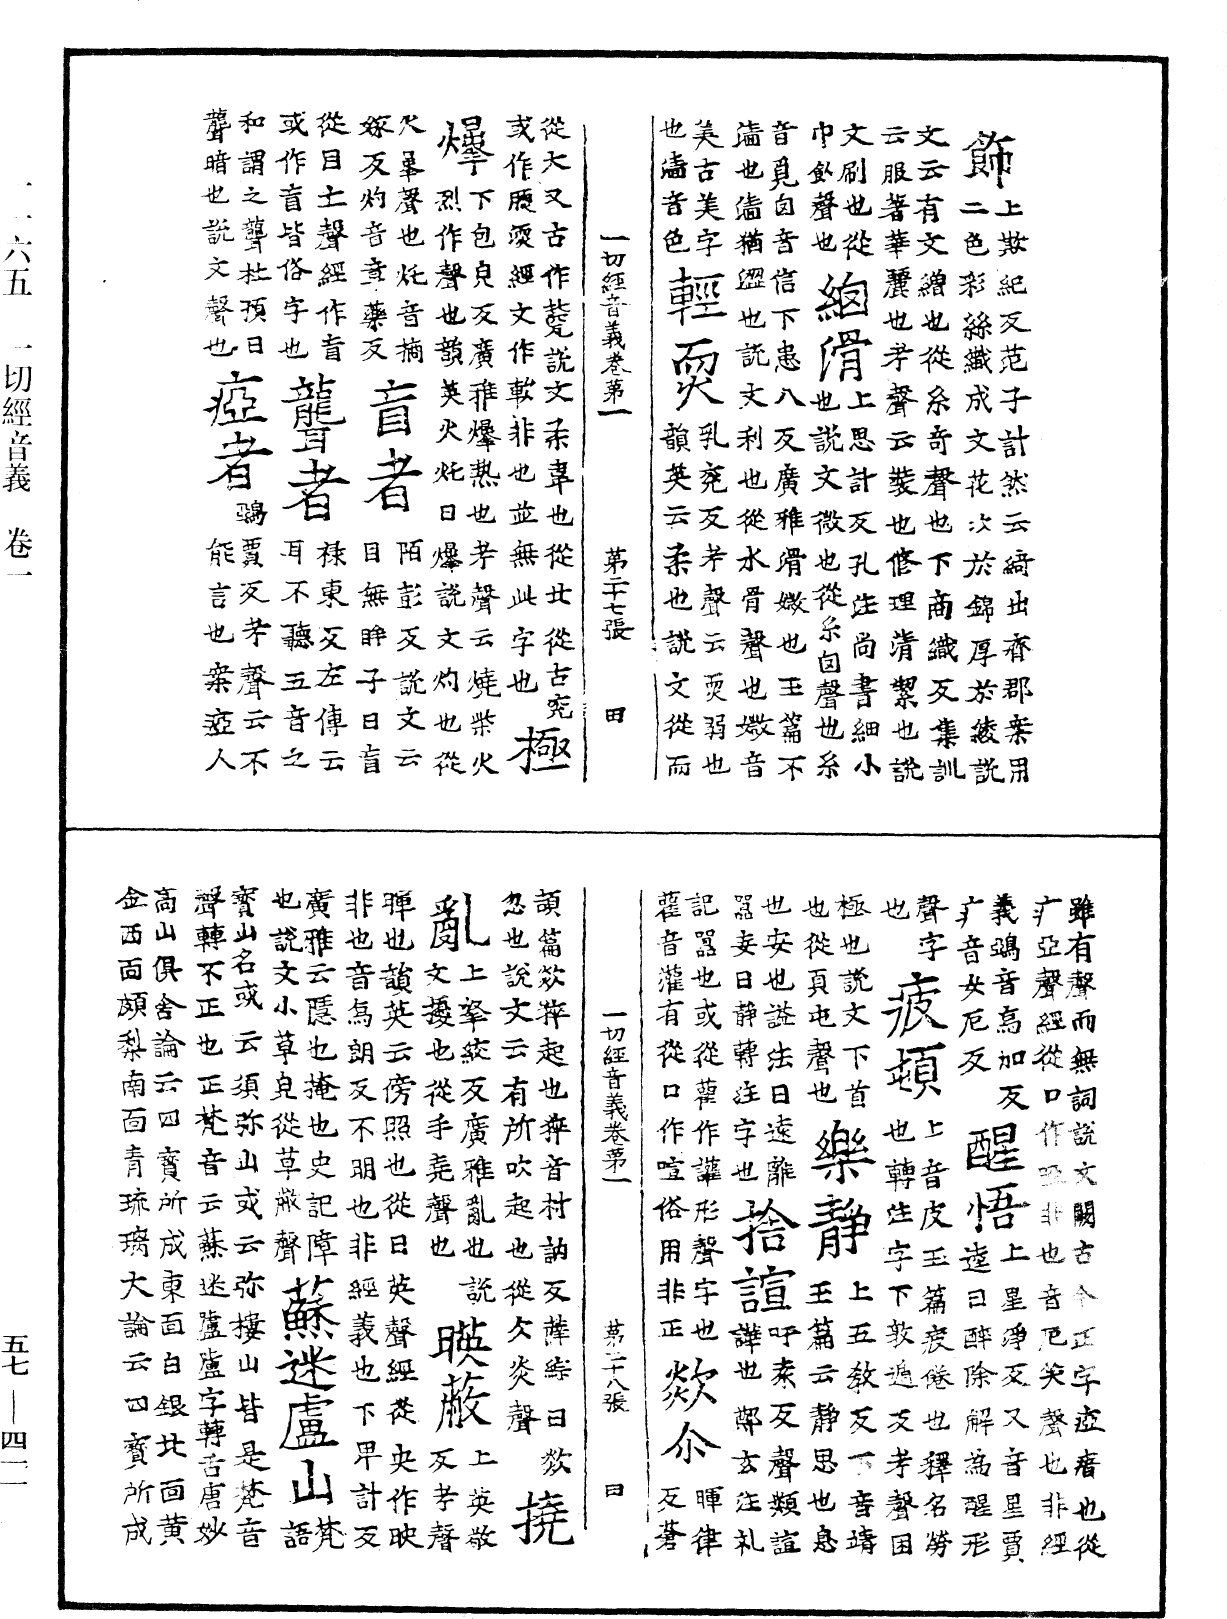 一一六五　一切經音義　卷一
飾上欺紀反范子計然云綺出齊郡案用
二色彩絲織成文花次於錦厚於綾說
文云有文繒也從糸奇聲也下商織反集訓
云服著華麗也考聲云裝也修理清潔也說
文刷也從
巾飤聲也 細滑 上思計反孔注尚書細小
也說文微也從糸囟聲也糸
音覓囟音信下患八反廣雅滑㜫也玉篇不
濇也濇猶澀也說文利也從水骨聲也㜫音
美古美字
也濇音色 輕耎 乳兗反考聲云耎弱也
韻英云柔也說文從而
一切經音義卷第一　第二十七張　田
從大又古作㼱說文柔韋也從廿從古兗
或作腝濡經文作軟非也並無此字也 極
爆 下包皃反廣雅爆熱也考聲云燒柴火
烈作聲也韻英火烢曰爆說文灼也從
火㬥聲也烢音摘
嫁反灼音章藥反 盲者 陌彭反說文云
目無眸子曰盲
從目亡聲經作肓
或作盲皆俗字也 聾者 祿東反左傳云
耳不聽五音之
和謂之聾杜預曰
聾暗也說文聲也 瘂者 鵶賈反考聲云不
能言也案瘂人
雖有聲而無詞說文闕古今正字瘂瘖也從
疒亞聲經從口作啞非也音厄笑聲也非經
義鵶音烏加反
疒音女厄反 醒悟 上星淨反又音星賈
逵曰醉除解為醒形
聲字
也 疲頓 上音皮玉篇疲倦也釋名勞
也轉注字下敦遁反考聲困
極也說文下首
也從頁屯聲也 樂靜 上五教反下音靖
玉篇云靜思也息
也安也謚法曰遠離
囂妄曰靜轉注字也 捨諠 吁袁反聲類諠
譁也鄭玄注礼
記囂也或從雚作讙形聲字也
雚音灌有從口作喧俗用非正 欻尒 暉律
反蒼
一切經音義卷第一　第二十八張　曰
頡篇欻猝起也猝音村訥反薛綜曰欻
忽也說文云有所吹起也從欠炎聲 撓
亂 上拏絞反廣雅亂也說
文擾也從手堯聲也 暎蔽 上英敬
反考聲
暉也韻英云傍照也從日英聲經從央作映
非也音烏朗反不明也非經義也下卑計反
廣雅云隱也掩也史記障
也說文小草皃從草敝聲 蘇迷盧山 梵
語
寶山名或云須弥山或云弥樓山皆是梵音
聲轉不正也正梵音云蘇迷盧盧字轉舌唐妙
高山俱舍論云四寶所成東面白銀北面黃
金西面頗梨南面青琉璃大論云四寶所成
五七—四一一